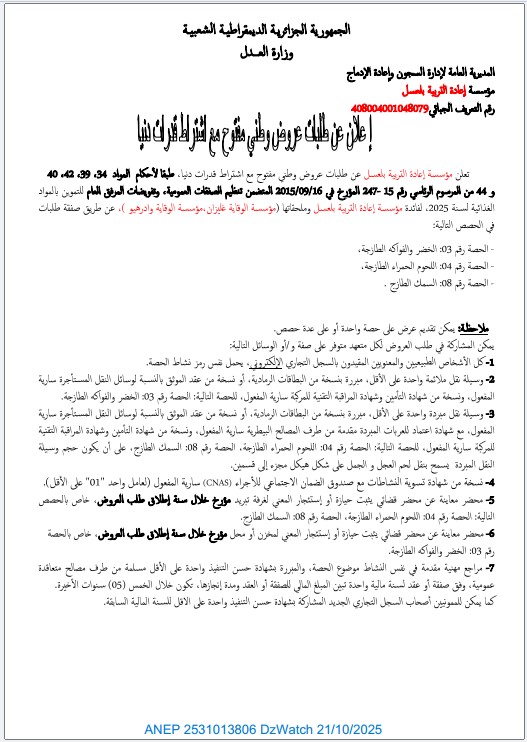 الجمهورية الجزائرية الديمقراطية الشعبية
وزارة العـدل
المديرية العامة لإدارة السجون وإعادة الإدماج
مؤسسة إعادة التربية بلعسل
رقم التعريف الجبائي408004001048079
إعلان عن طلبات عروض وطني مفتوح مع اشتراط قدرات دنيا
تعلن مؤسسة إعادة التربية بلعسل عن طلبات عروض وطني مفتوح مع اشتراط قدرات دنيا، طبقا لأحكام المواد 34، 39، 42، 40
و 44 من المرسوم الرئاسي رقم 15 -247 المؤرخ في 2015/09/16 المتضمن تنظيم الصفقات العمومية، وتفويضات المرفق العام للتموين بالمواد
الغذائية لسنة 2025، لفائدة مؤسسة إعادة التربية بلعسل وملحقاتها (مؤسسة الوقاية غليزان،مؤسسة الوقاية وادرهيو )، عن طريق صفقة طلبات
في الحصص التالية:
- الحصة رقم 03: الخضر والفواكه الطازجة،
- الحصة رقم 04: اللحوم الحمراء الطازجة،
- الحصة رقم 08: السمك الطازج .
ملاحظة: يمكن تقديم عرض على حصة واحدة أو على عدة حصص.
يمكن المشاركة في طلب العروض لكل متعهد متوفر على صفة و/أو الوسائل التالية:
1- كل الأشخاص الطبيعيين والمعنويين المقيدون بالسجل التجاري الإلكتروني، يحمل نفس رمز نشاط الحصة.
2- وسيلة نقل ملائمة واحدة على الأقل، مبررة بنسخة من البطاقات الرمادية، أو نسخة من عقد الموثق بالنسبة لوسائل النقل المستأجرة سارية
المفعول، ونسخة من شهادة التأمين وشهادة المراقبة التقنية للمركبة سارية المفعول، للحصة التالية: الحصة رقم 03: الخضر والفواكه الطازجة.
3- وسيلة نقل مبردة واحدة على الأقل، مبررة بنسخة من البطاقات الرمادية، أو نسخة من عقد الموثق بالنسبة لوسائل النقل المستأجرة سارية
المفعول، مع شهادة اعتماد للعربات المبردة مقدمة من طرف المصالح البيطرية سارية المفعول، ونسخة من شهادة التأمين وشهادة المراقبة التقنية
للمركبة سارية المفعول، للحصة التالية: الحصة رقم 04: اللحوم الحمراء الطازجة، الحصة رقم 08: السمك الطازج، على أن يكون حجم وسيلة
النقل المبردة يسمح بنقل لحم العجل و الجمل على شكل هيكل مجزء إلى قسمين.
4- نسخة من شهادة تسوية النشاطات مع صندوق الضمان الاجتماعي للأجراء (CNAS) سارية المفعول (لعامل واحد "01" على الأقل).
5- محضر معاينة عن محضر قضائي يثبت حيازة أو إستئجار المعني لغرفة تبريد مؤرخ خلال سنة إطلاق طلب العروض، خاص بالحصص
التالية: رقم 04: اللحوم الحمراء الطازجة، الحصة رقم 08: السمك الطازج.
6- محضر معاينة عن محضر قضائي يثبت حيازة أو إستئجار المعني لمخزن أو محل مؤرخ خلال سنة إطلاق طلب العروض، خاص بالحصة
رقم 03: الخضر والفواكه الطازجة.
7- مراجع مهنية مقدمة في نفس النشاط موضوع الحصة، والمبررة بشهادة حسن التنفيذ واحدة على الأقل مسلمة من طرف مصالح متعاقدة
عمومية، وفق صفقة أو عقد لسنة مالية واحدة تبين المبلغ المالي للصفقة أو العقد ومدة إنجازها، تكون خلال الخمس (05) سنوات الأخيرة.
كما يمكن للممونيين أصحاب السجل التجاري الجديد المشاركة بشهادة حسن التنفيذ واحدة على الاقل للسنة المالية السابقة.
ANEP 2531013806 DzWatch 21/10/2025